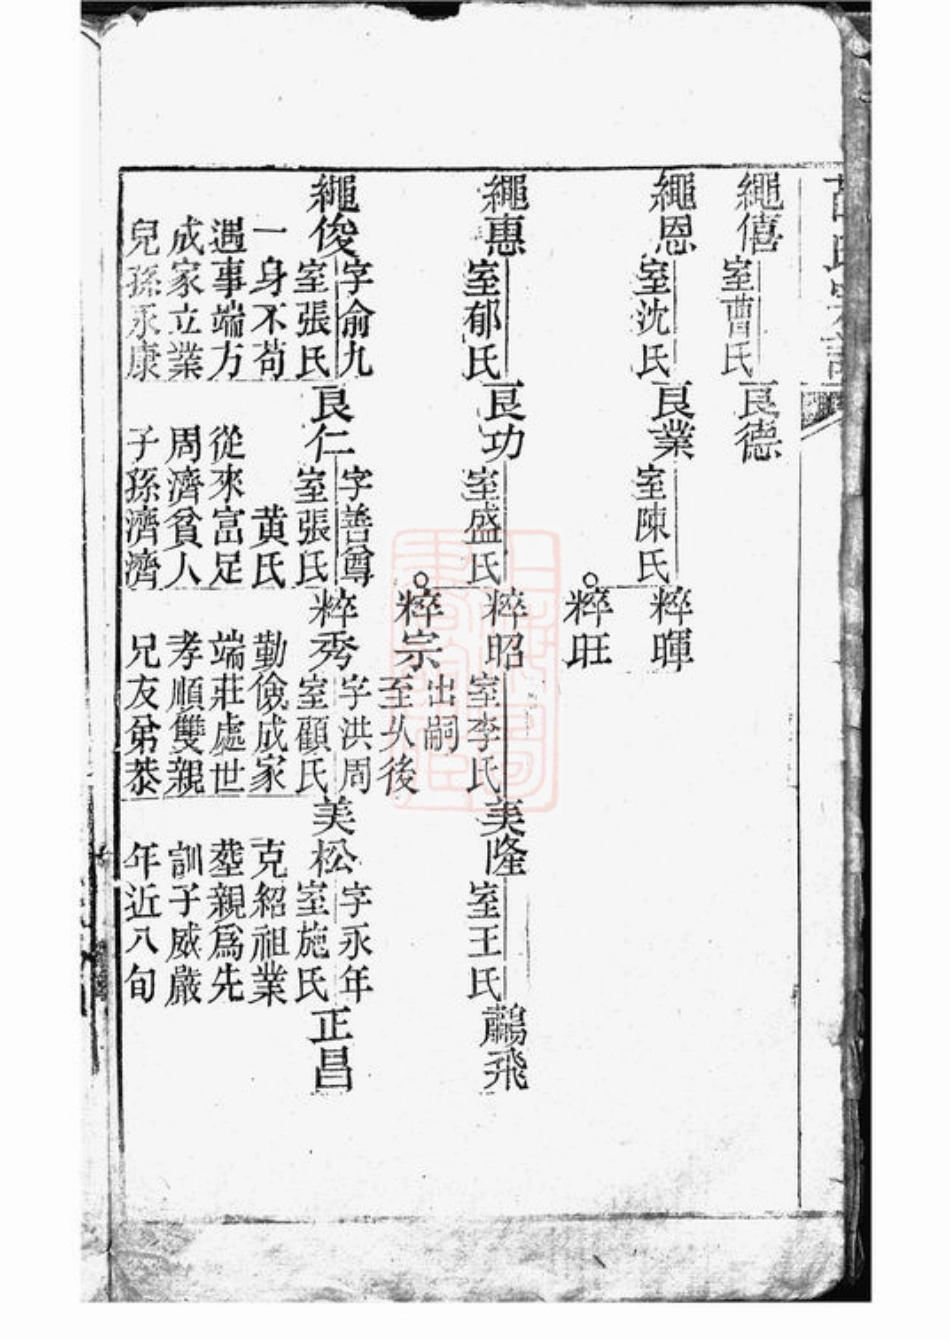 繩僖室曹氏 良德
繩恩室沈氏 良業室陳氏 粹暉
粹旺
繩惠室郁氏 良功室盛氏 粹昭室李氏 美隆室王氏 鸕飛
粹宗出嗣
至从後
繩俊字俞九 良仁字善尊 粹秀字洪周 美松字永年 正昌
室張氏 室張氏 室顧氏 室施氏
一身不苟 黄氏 勤儉成家 克紹祖業
遇事端方 從來富足 端莊處世 塟親爲先
成家立業 周濟貧人 孝順雙親 訓子威嚴
兒孫永康 子孫濟濟 兄友弟恭 年近八旬